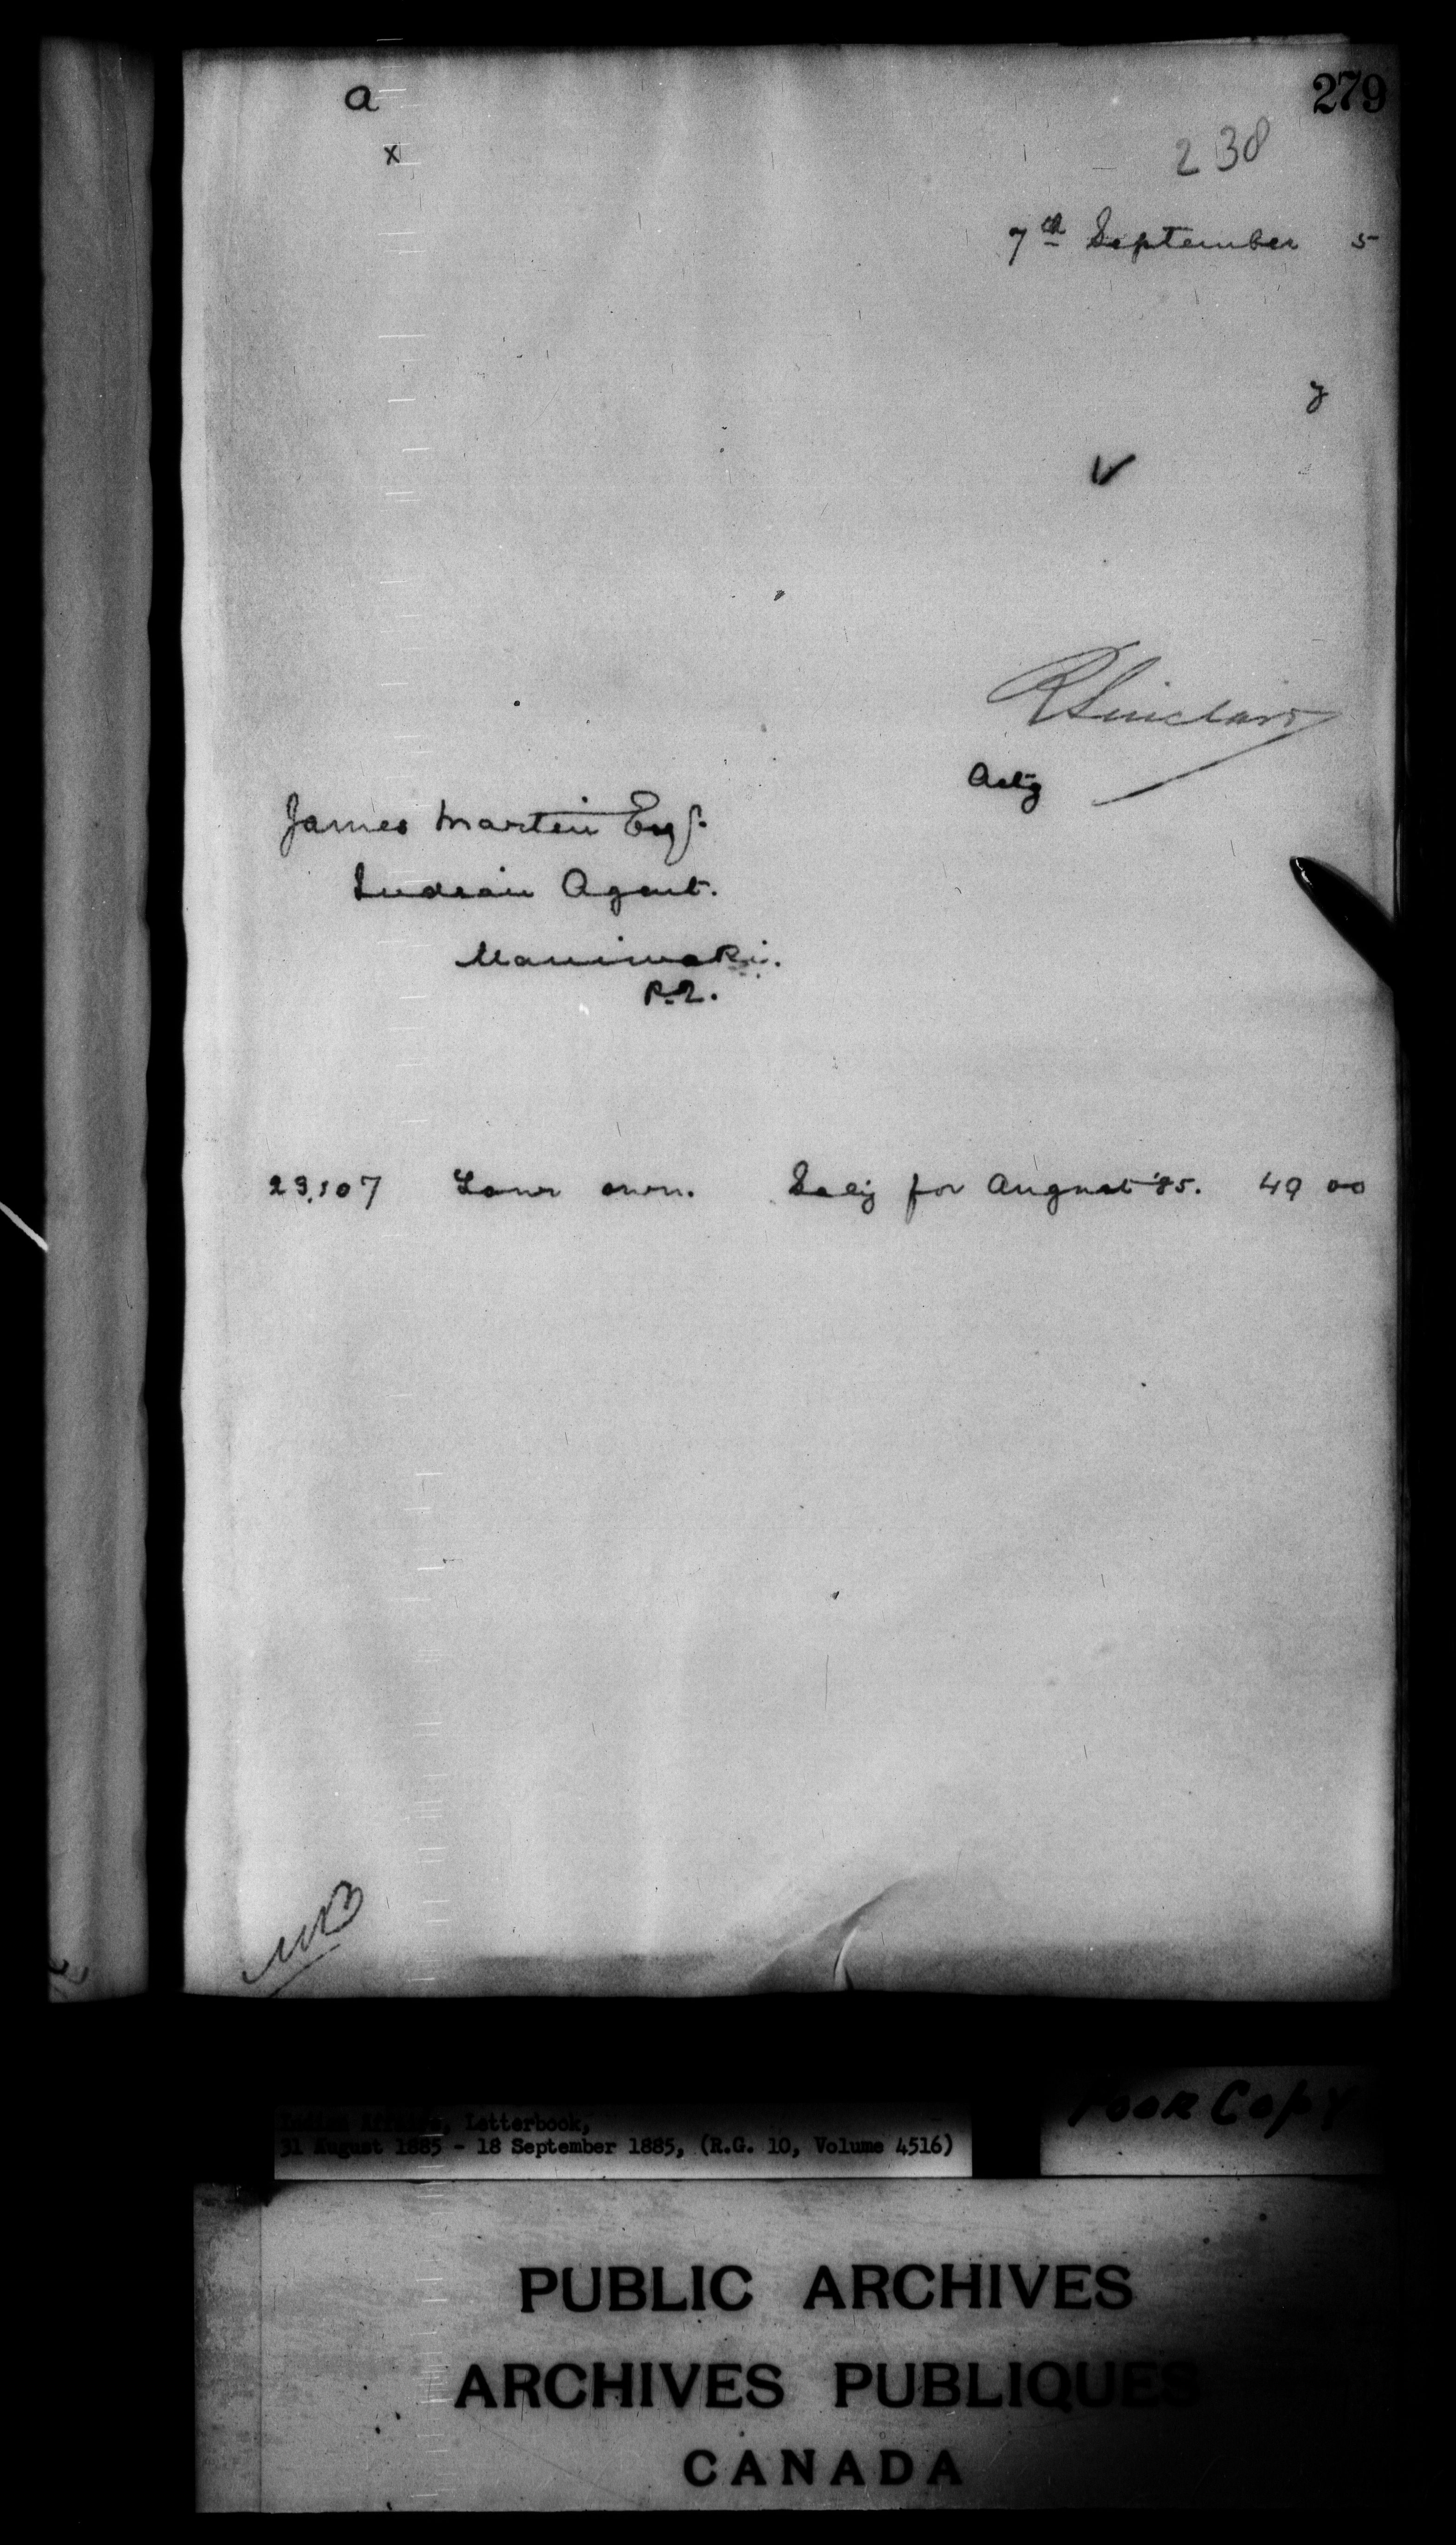 a
279
x
238
7th September 5
y
R Sinclair
Actg
James Martin Esqr.
Indian Agent.
Maniwaki.
P.Q.
Your own. Saly for August '85. 49 00
Indian Affairs, Letterbook,
31 August 1885 - 18 September 1885, (R.G. 10, Volume 4516)
POOR COPY
PUBLIC ARCHIVES
ARCHIVES PUBLIQUES
CANADA